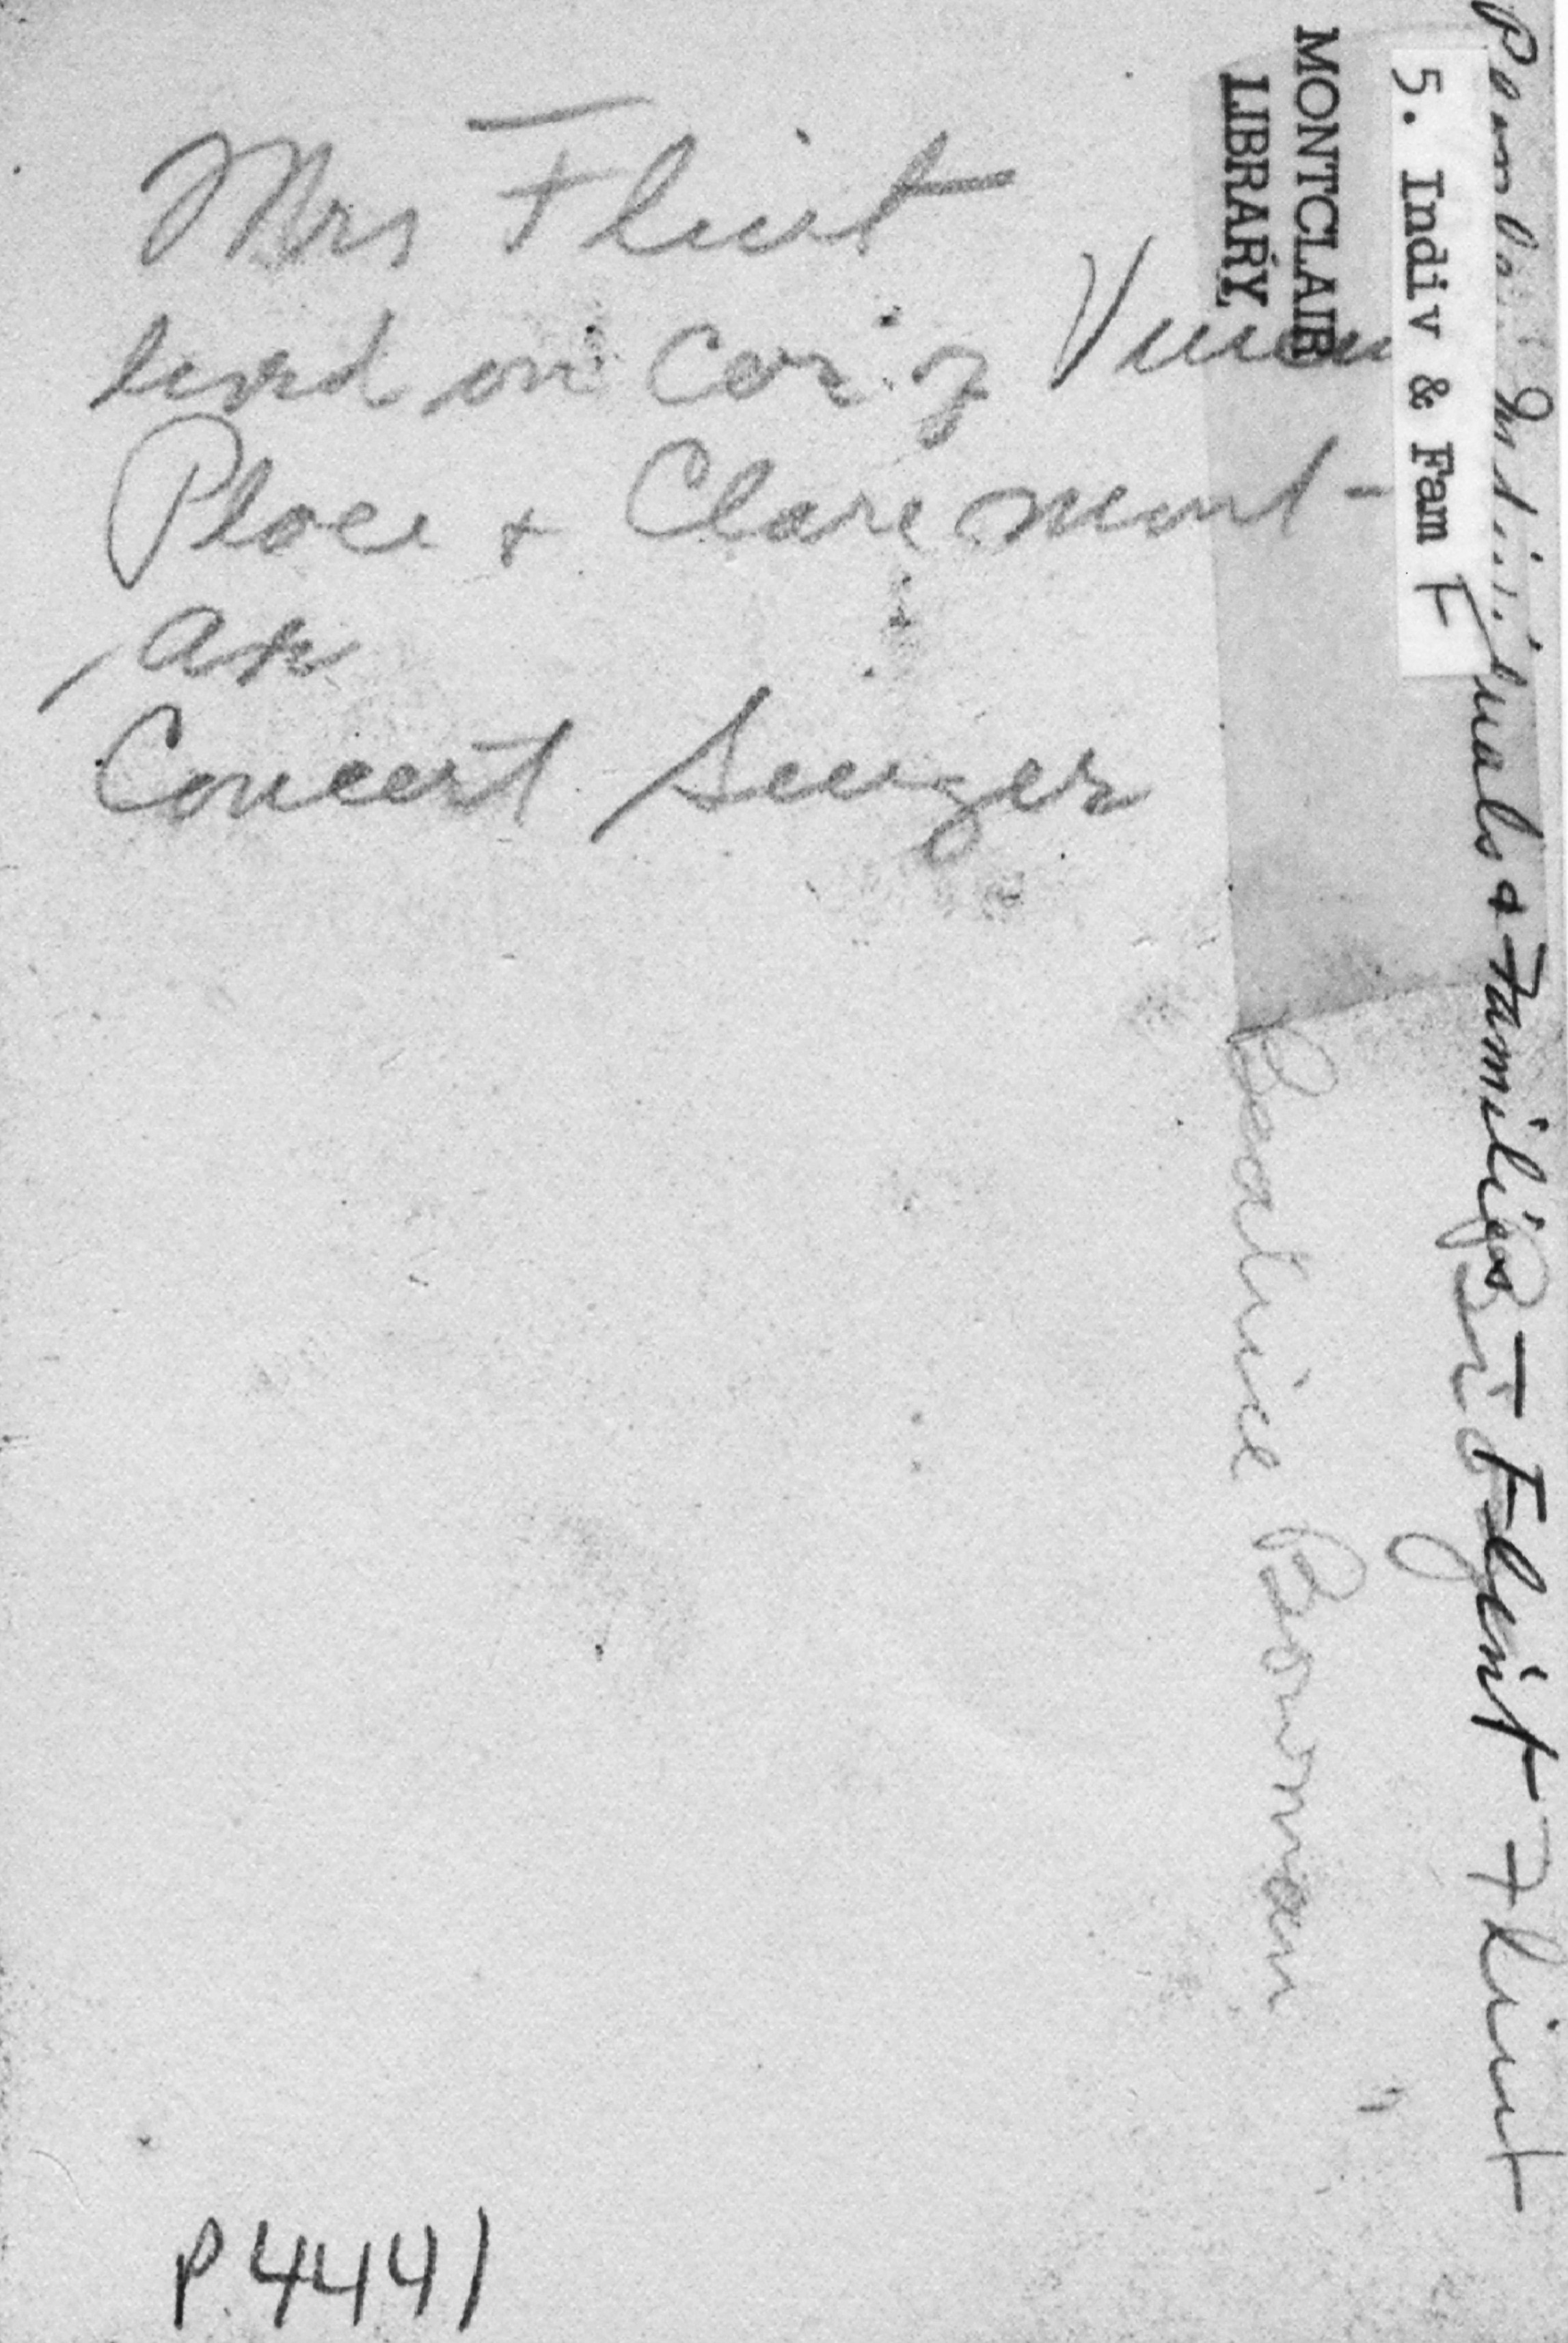 Mrs Flint
lived on Cor. of Vincent
Place & Claremont -
as
Concert Singer
MONTCLAIR
LIBRARY
5. Indiv & Fam F
Individuals & Families - Flint Flint
Beatrice Bowman
P4441